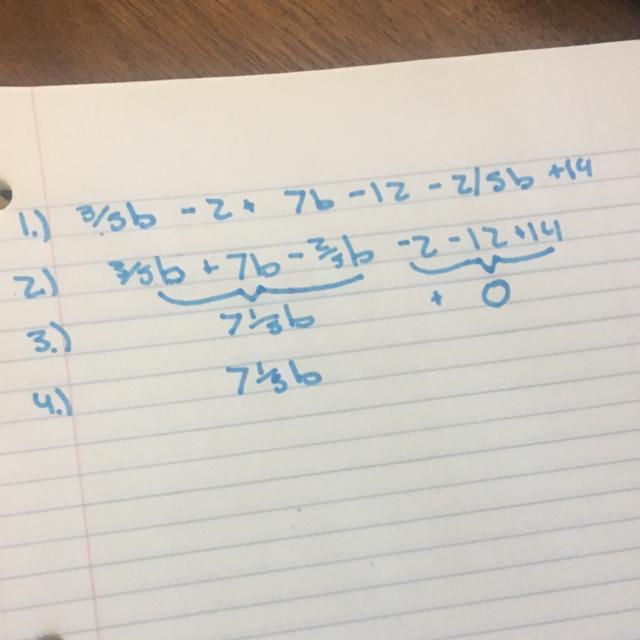 1.) 3/5b - 2 + 7b - 12 - 2/5b + 14
2.) 3/5b + 7b - 2/5b - 2 - 12 + 14
3.) 7 1/5b + 0
4.) 7 1/5b